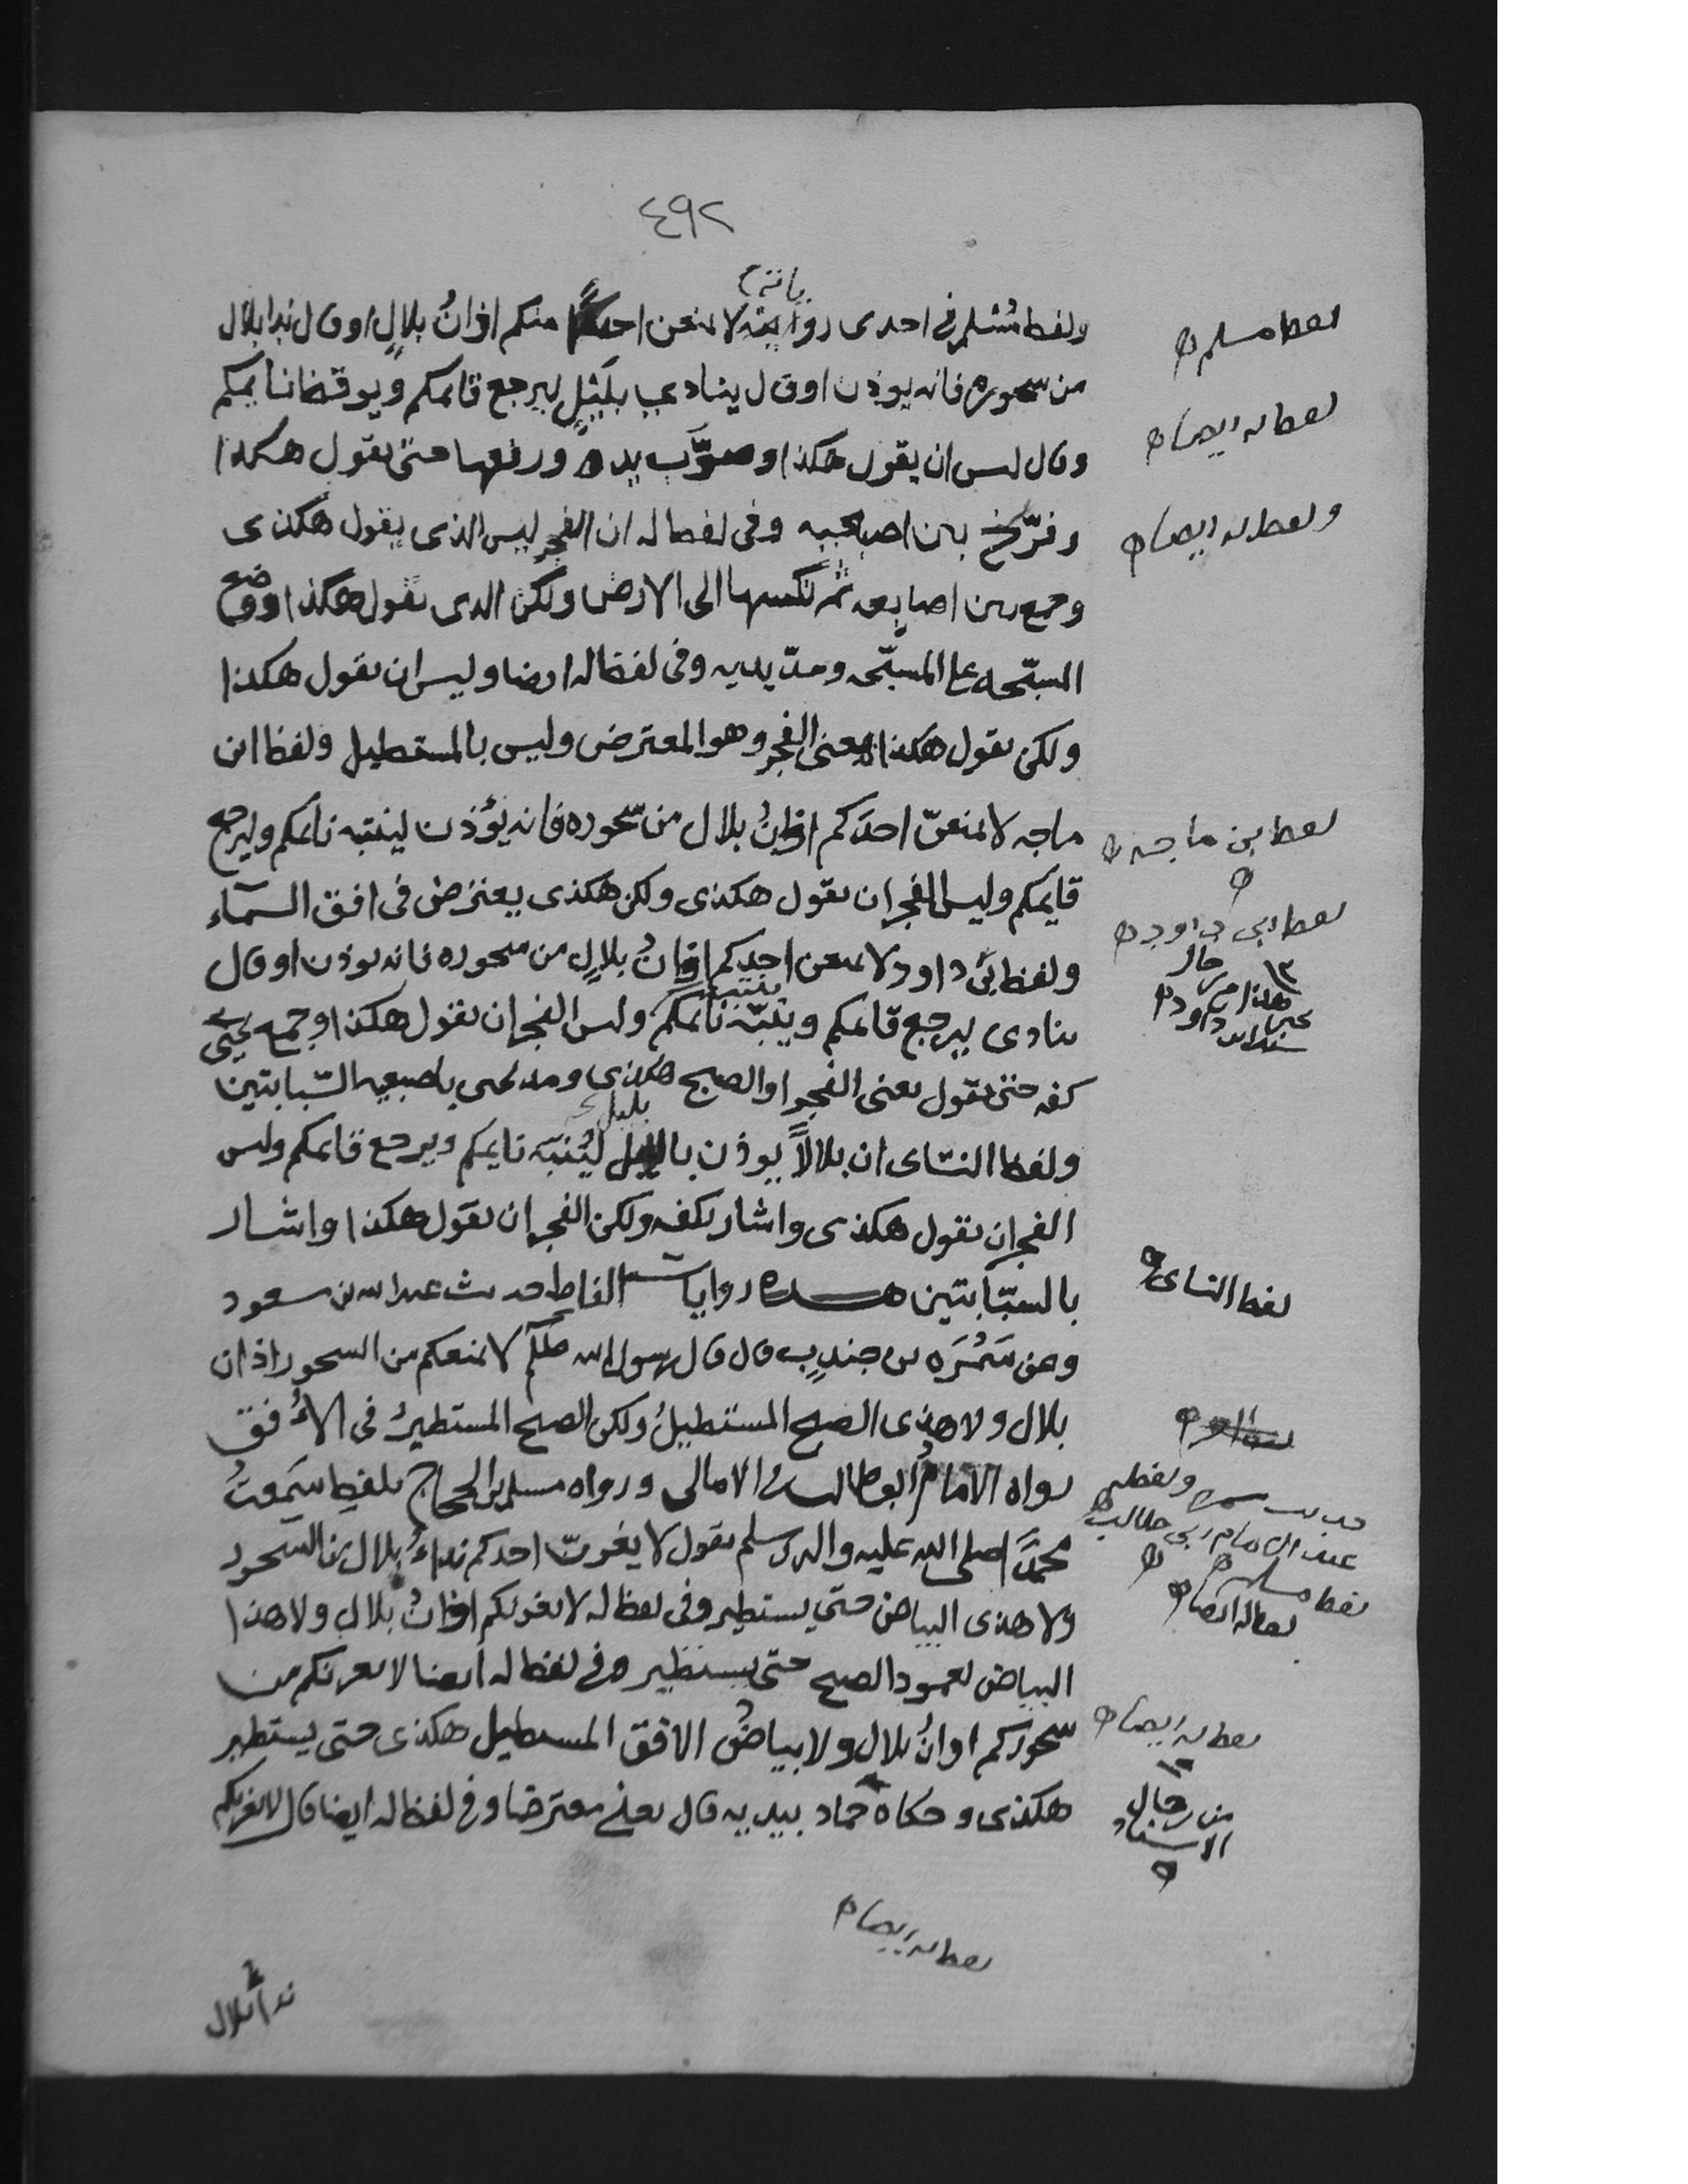 ٤٩٢
ولفظ مُسْلم في احدى رواياته لا يمنعن احدًا منكم اذانُ بلالٍ او قال ندا بلال
من سحوره فانه يوذن او قال ينادي بلَيْلٍ ليرجع قائمكم ويوقظ نايمكم
وقال ليس ان يقول هكذا وصوَّب يده ورفعها حتى يقول هكذا
وفرّج بين اصبعيه وفي لفظ له ان الفجر ليس الذى يقول هكذى
وجمع بين اصابعه ثم نكسها الى الارض ولكن الذى يقول هكذا ووضع
المسبّحه على المسبّحه ومدّ يديه وفى لفظ له ايضا وليس ان يقول هكذا
ولكن يقول هكذا يعنى الفجر وهو المعترض وليس بالمستطيل ولفظ ابن
ماجه لا يمنعنّ احدَكم اذانُ بلال من سحوره فانه يؤذن لينتبه نائمكم وليرجع
قايمكم وليس الفجر ان يقول هكذى ولكن هكذى يعترض فى افق السمآء
ولفظ ابى داود لا يمنعن احدكم اذانُ بلالٍ من سحوره فانه يوذن او قال
ينادى ليرجع قائمكم وينبّه نائمكم وليس الفجر ان يقول هكذا وجمع يحيى
كفه حتى يقول يعنى الفجر او الصبح هكذى ومد يحيى باصبعيه السّبابتين
ولفظ النسّاى ان بلالاً يوذن بليل ليُنَبّه نايمكم ويرجع قائمكم وليس
الفجر ان يقول هكذى واشار بكفه ولكن الفجر ان يقول هكذا واشار
بالسبّابتين هذه روايات الفاظ حديث عبد الله بن مسعود
وعن سَمُرَه بن جندبٍ قال قال رسول الله صللم لا يمنعكم من السحور اذان
بلال ولا هذى الصبح المستطيلُ ولكن الصبح المستطيرُ فى الأُفق
رواه الامامُ ابو طالب في الامالى ورواه مسلم بن الحجاج بلفظ سَمِعتُ
محمدًا صلى الله عليه واله وسلم يقول لا يغرنّ احدكم نداءُ بلال من السحور
ولا هذى البياض حتى يستطير وفى لفظ له لا يغرنكم اذانُ بلال ولا هذا
البياض لعمود الصبح حتى يستطير وفي لفظ له ايضا لا يغرنكم من
سحوركم اذانُ بلال ولا بياضُ الافق المستطيل هكذى حتى يستطير
هكذى وحكاه حماد بيديه قال يعني معترضا وفي لفظ له ايضا قال لا يغرنكم
ندا بلال
لفظ مسلم
لفظ له ايضا
ولفظ له ايضا
لفظ بن ماجه
لفظ ابى داود
لفظ النساى
حديث سمره ولفظه
عند الامام ابى طالب
لفظ مسلم
لفظ له ايضا
لفظ له ايضا
من رجال
الاسناد
لفظ له ايضا